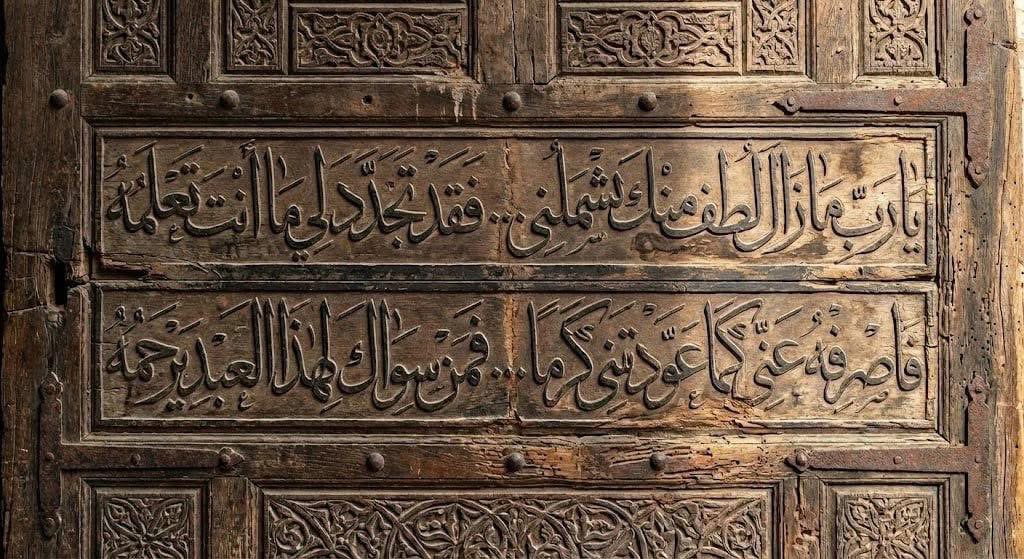 يَا رَبِّ مَا زَالَ لُطْفٌ مِنْكَ يَشْمَلُنِي ... فَقَدْ تَجَدَّدَ لِي مَا أَنْتَ تَعْلَمُهُ
فَاصْرِفْهُ عَنِّي كَمَا عَوَّدْتَنِي كَرَمًا ... فَمَنْ سِوَاكَ لِهَذَا العَبْدِ يَرْحَمُهُ